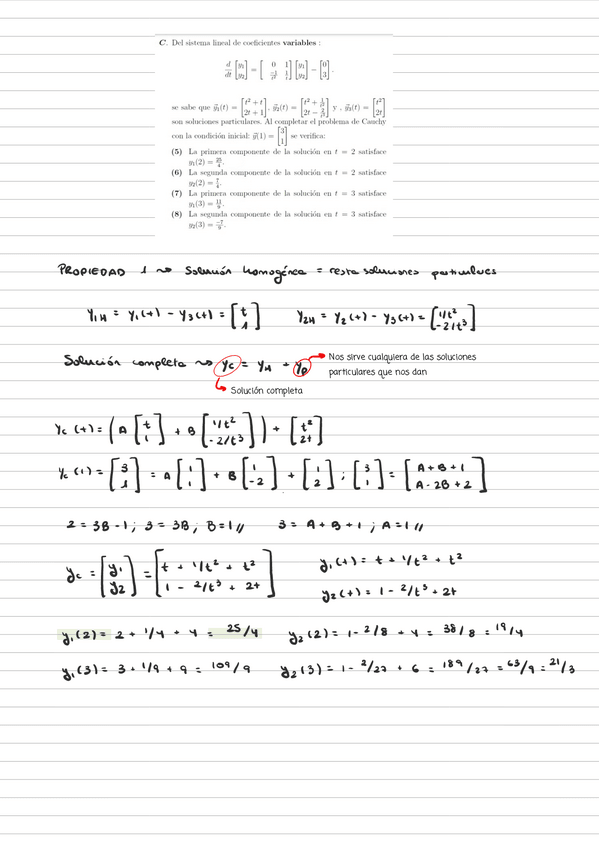 C. Del sistema lineal de coeficientes variables :
d/dt [y₁ y₂] = [0 1 -1/t² 1/t] [y₁ y₂] − [0 3].
se sabe que y⃗₁(t) = [t² + t 2t + 1], y⃗₂(t) = [t² + 1/t² 2t − 2/t³] y , y⃗₃(t) = [t² 2t]
son soluciones particulares. Al completar el problema de Cauchy
con la condición inicial: y⃗(1) = [3 1] se verifica:
(5) La primera componente de la solución en t = 2 satisface
y₁(2) = 25/4.
(6) La segunda componente de la solución en t = 2 satisface
y₂(2) = 7/4.
(7) La primera componente de la solución en t = 3 satisface
y₁(3) = 11/9.
(8) La segunda componente de la solución en t = 3 satisface
y₂(3) = -7/9.
PROPIEDAD 1 ⇝ Solución homogénea = resta soluciones particulares
y₁H = y₁(t) − y₃(t) = [t 1] y₂H = y₂(t) − y₃(t) = [1/t² −2/t³]
Solución completa ⇝ yc = yH + yp
Nos sirve cualquiera de las soluciones
particulares que nos dan
Solución completa
yc(t) = (A [t 1] + B [1/t² −2/t³]) + [t² 2t]
yc(1) = [3 1] = A [1 1] + B [1 −2] + [1 2] ; [3 1] = [A + B + 1 A − 2B + 2]
2 = 3B − 1 ; 3 = 3B, B = 1 // 3 = A + B + 1 ; A = 1 //
yc = [y₁ y₂] = [t + 1/t² + t² 1 − 2/t³ + 2t]
y₁(t) = t + 1/t² + t²
y₂(t) = 1 − 2/t³ + 2t
y₁(2) = 2 + 1/4 + 4 = 25/4 y₂(2) = 1 − 2/8 + 4 = 38/8 = 19/4
y₁(3) = 3 + 1/9 + 9 = 109/9 y₂(3) = 1 − 2/27 + 6 = 189/27 = 63/9 = 21/3